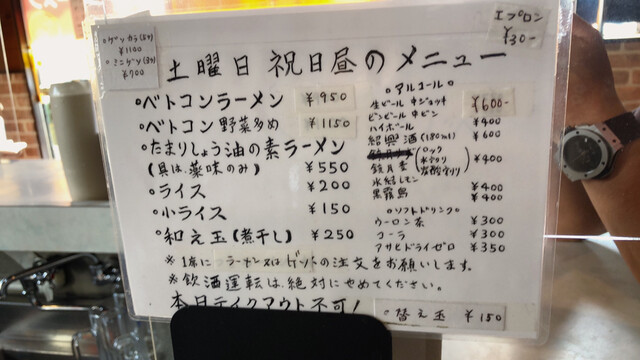 ・ゲンカラ(5ケ)
¥1100
・ミニゲン(3ケ)
¥700
エプロン
¥30-
土曜日 祝日昼のメニュー
ベトコンラーメン ¥950
ベトコン 野菜多め ¥1150
たまりしょう油の素ラーメン
(具は薬味のみ) ¥550
ライス ¥200
小ライス ¥150
和え玉(煮干し) ¥250
アルコール
生ビール 中ジョッキ ¥600-
ビンビール 中ビン
ハイボール ¥400
紹興酒(180ml) ¥600
鏡月 麦 (ロック 水わり 炭酸割り) ¥400
氷結レモン ¥400
黒霧島 ¥400
ソフトドリンク
ウーロン茶 ¥300
コーラ ¥300
アサヒドライゼロ ¥350
※ 1席にラーメン又はゲントの注文をお願いします。
※ 飲酒運転は絶対にやめてください。
本日テイクアウト不可!
替え玉 ¥150